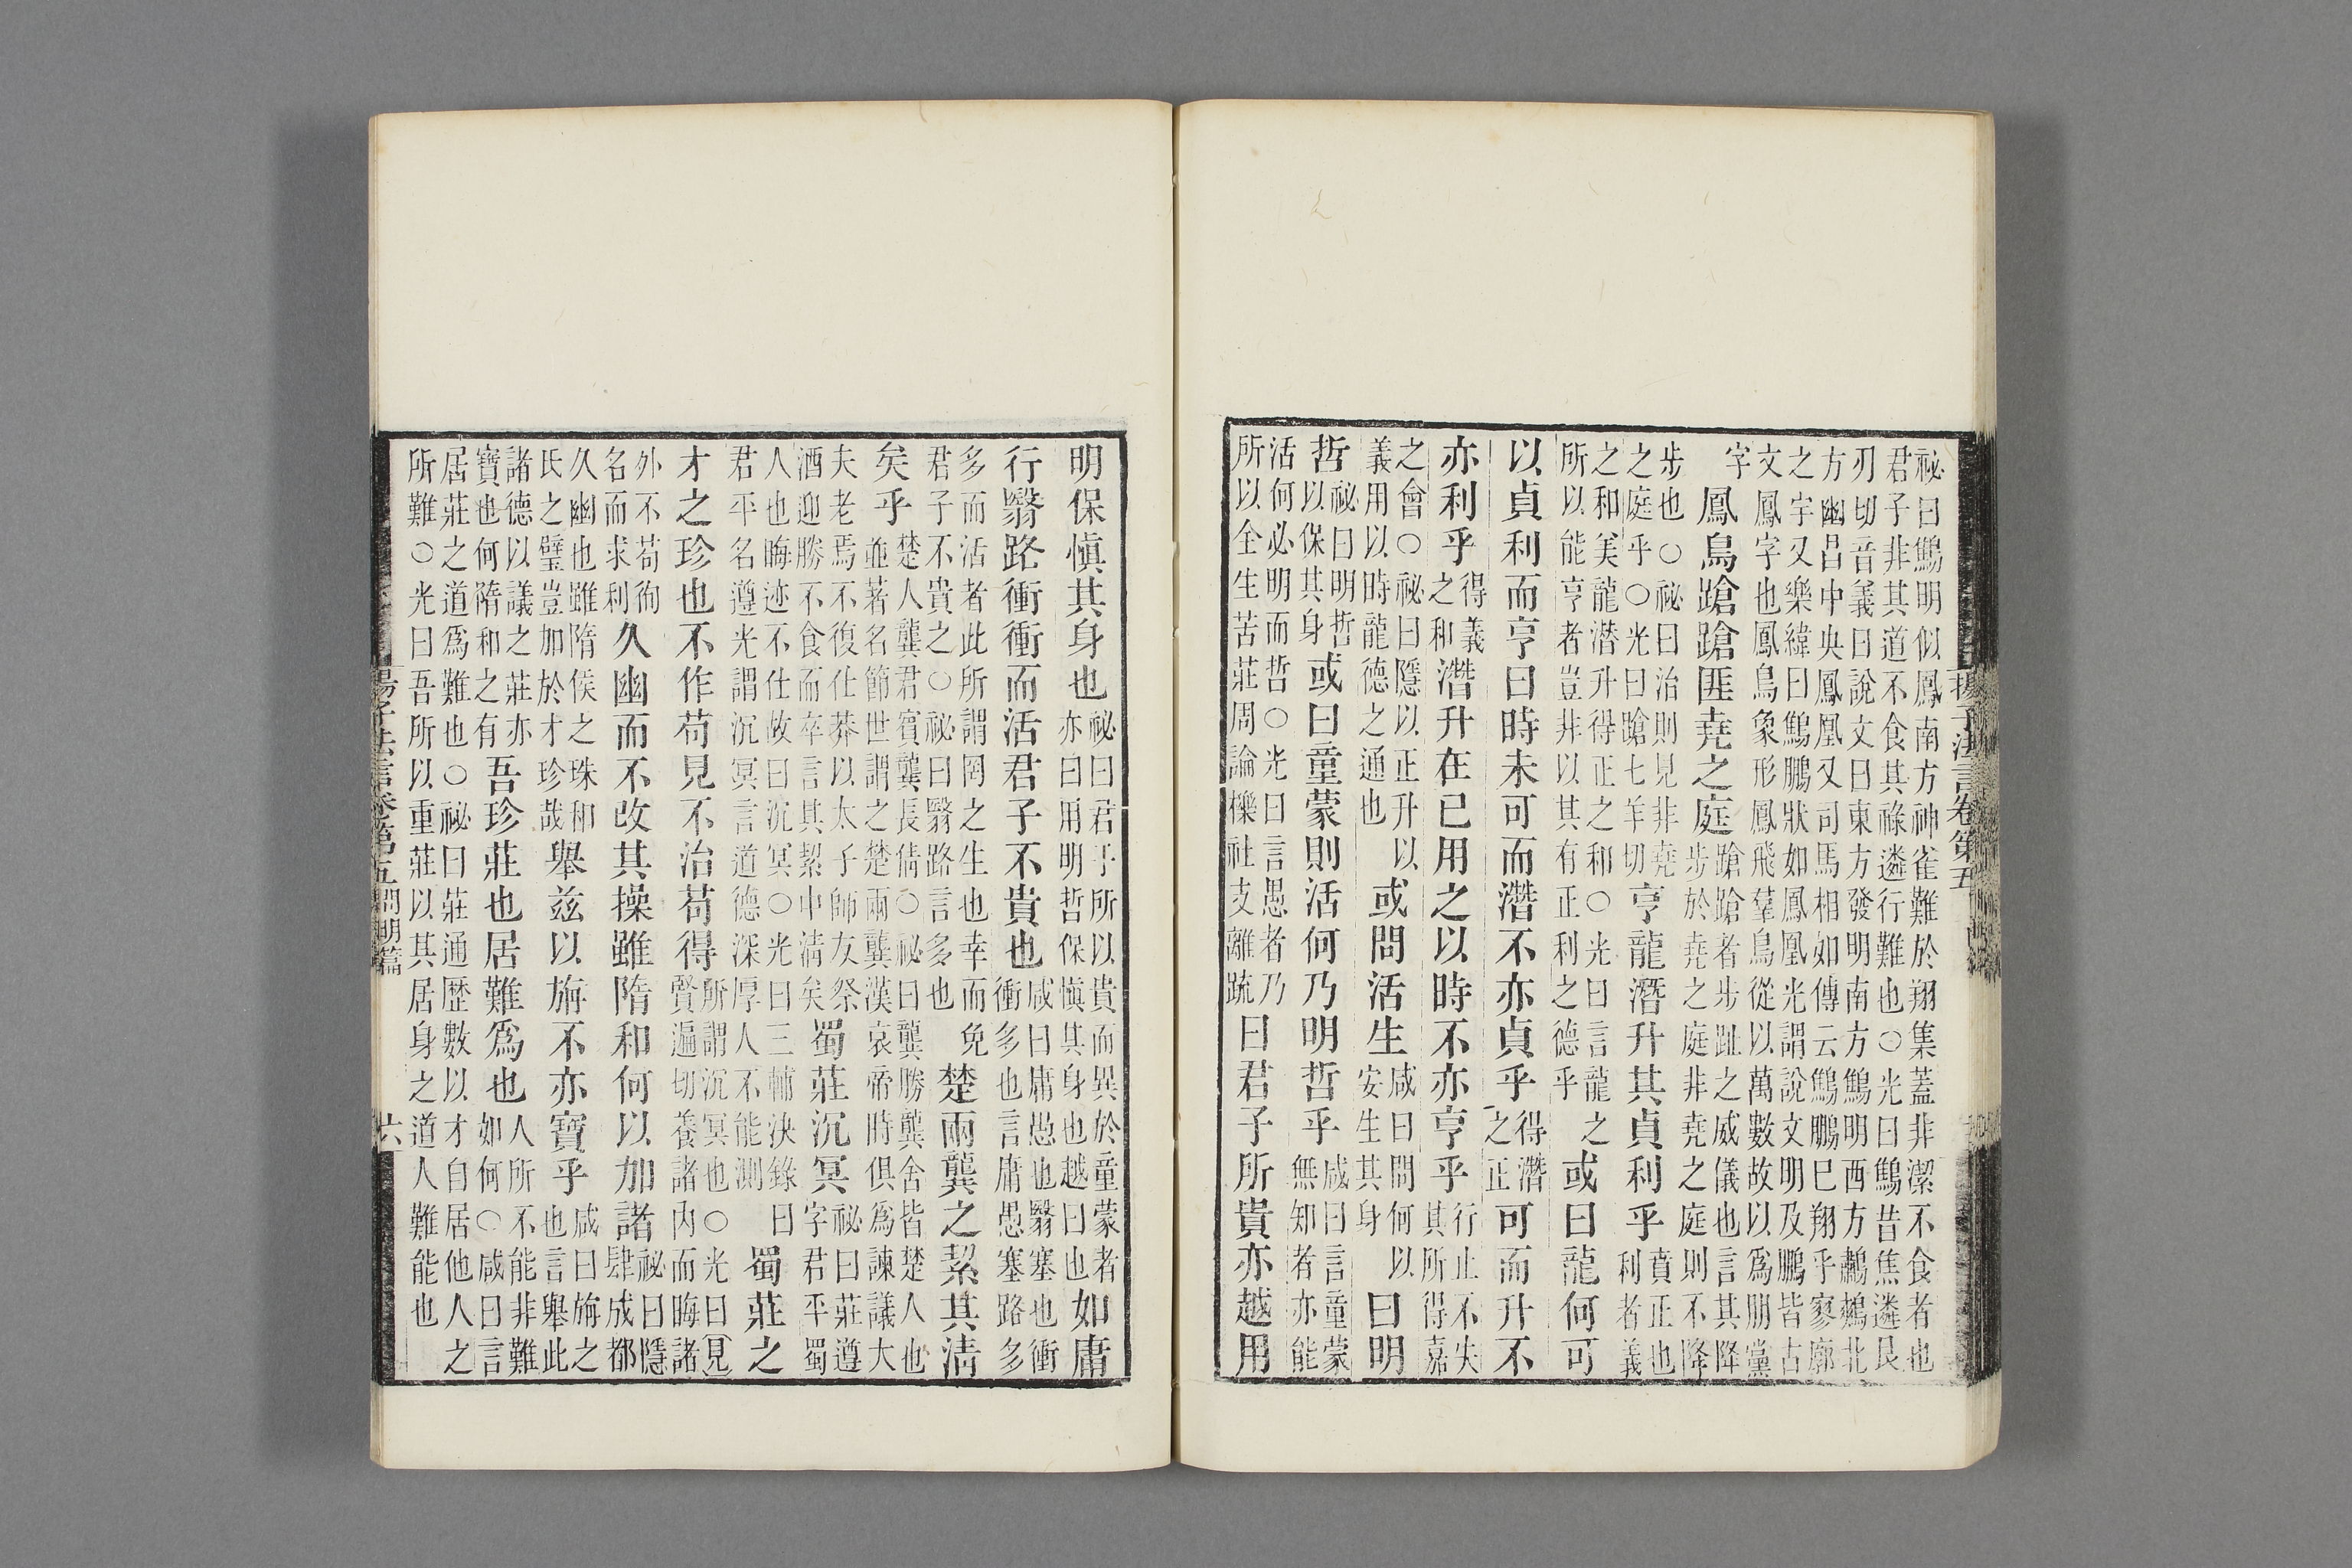 揚子法言卷第五
祕曰鷦明似鳳南方神雀難於翔集蓋非潔不食者也
君子非其道不食其祿遴行難也○光曰鷦昔焦遴艮
刃切音義曰說文曰東方發明南方鷦明西方鷫鷞北
方幽昌中央鳳凰又司馬相如傳云鷦鵬巳翔乎寥廓
之宇又樂緯曰鷦鵬狀如鳳凰光謂說文明及鵬皆古
文鳳字也鳳鳥象形鳳飛羣鳥從以萬數故以爲朋黨
字
鳳鳥蹌蹌匪堯之庭
蹌蹌者步趾之威儀也言其降
步於堯之庭非堯之庭則不降
步也○祕曰治則見非堯
之庭乎○光曰蹌七羊切
亨龍潛升其貞利乎
賁正也
利者義
之和美龍潛升得正之和○光曰言龍之
所以能亨者豈非以其有正利之德乎
或曰龍何可
以貞利而亨曰時未可而潛不亦貞乎
得潛
之正
可而升不
亦利乎
得義
之和
潛升在已用之以時不亦亨乎
行止不失
其所得嘉
之會○祕曰隱以正升以
義用以時龍德之通也
或問活生
咸曰問何以
安生其身
曰明
哲
祕曰明哲
以保其身
或曰童蒙則活何乃明哲乎
咸曰言童蒙
無知者亦能
活何必明而哲○光曰言愚者乃
所以全生苦莊周論櫟社支離䟽
曰君子所貴亦越用
明保愼其身也
祕曰君子所以貴而異於童蒙者
亦曰用明哲保愼其身也越曰也
如庸
行翳路衝衝而活君子不貴也
咸曰庸愚也翳塞也衝
衝多也言庸愚塞路多
多而活者此所謂罔之生也幸而免
君子不貴之○祕曰翳路言多也
楚兩龔之絜其清
矣乎
楚人龔君賓龔長倩○祕曰龔勝龔舍皆楚人也
並著名節世謂之楚兩龔漢哀帝時俱爲諫議大
夫老焉不復仕莽以太子師友祭
酒迎勝不食而卒言其絜中清矣
蜀莊沉冥
祕曰莊遵
字君平蜀
人也晦迹不仕故曰沉冥○光曰三輔決錄曰
君平名遵光謂沉冥言道德深厚人不能測
蜀莊之
才之珍也不作苟見不治苟得
所謂沉冥也○光曰見
賢遍切養諸内而晦諸
外不苟徇
名而求利
久幽而不改其操雖隋和何以加諸
祕曰隱
肆成都
久幽也雖隋侯之珠和
氏之璧豈加於才珍哉
舉茲以旃不亦寶乎
咸曰旃之
也言舉此
諸德以議之莊亦
寶也何隋和之有
吾珍莊也居難爲也
人所不能非難
如何○咸曰言
居莊之道爲難也○祕曰莊通歴數以才自居他人之
所難○光曰吾所以重莊以其居身之道人難能也
揚子法言卷第五問明篇
六